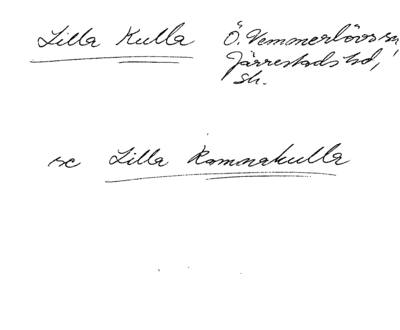 Lilla Kulla Ö. Vemmerlövs sn,
Järrestads hd,
Sk.
se Lilla Ramnakulla